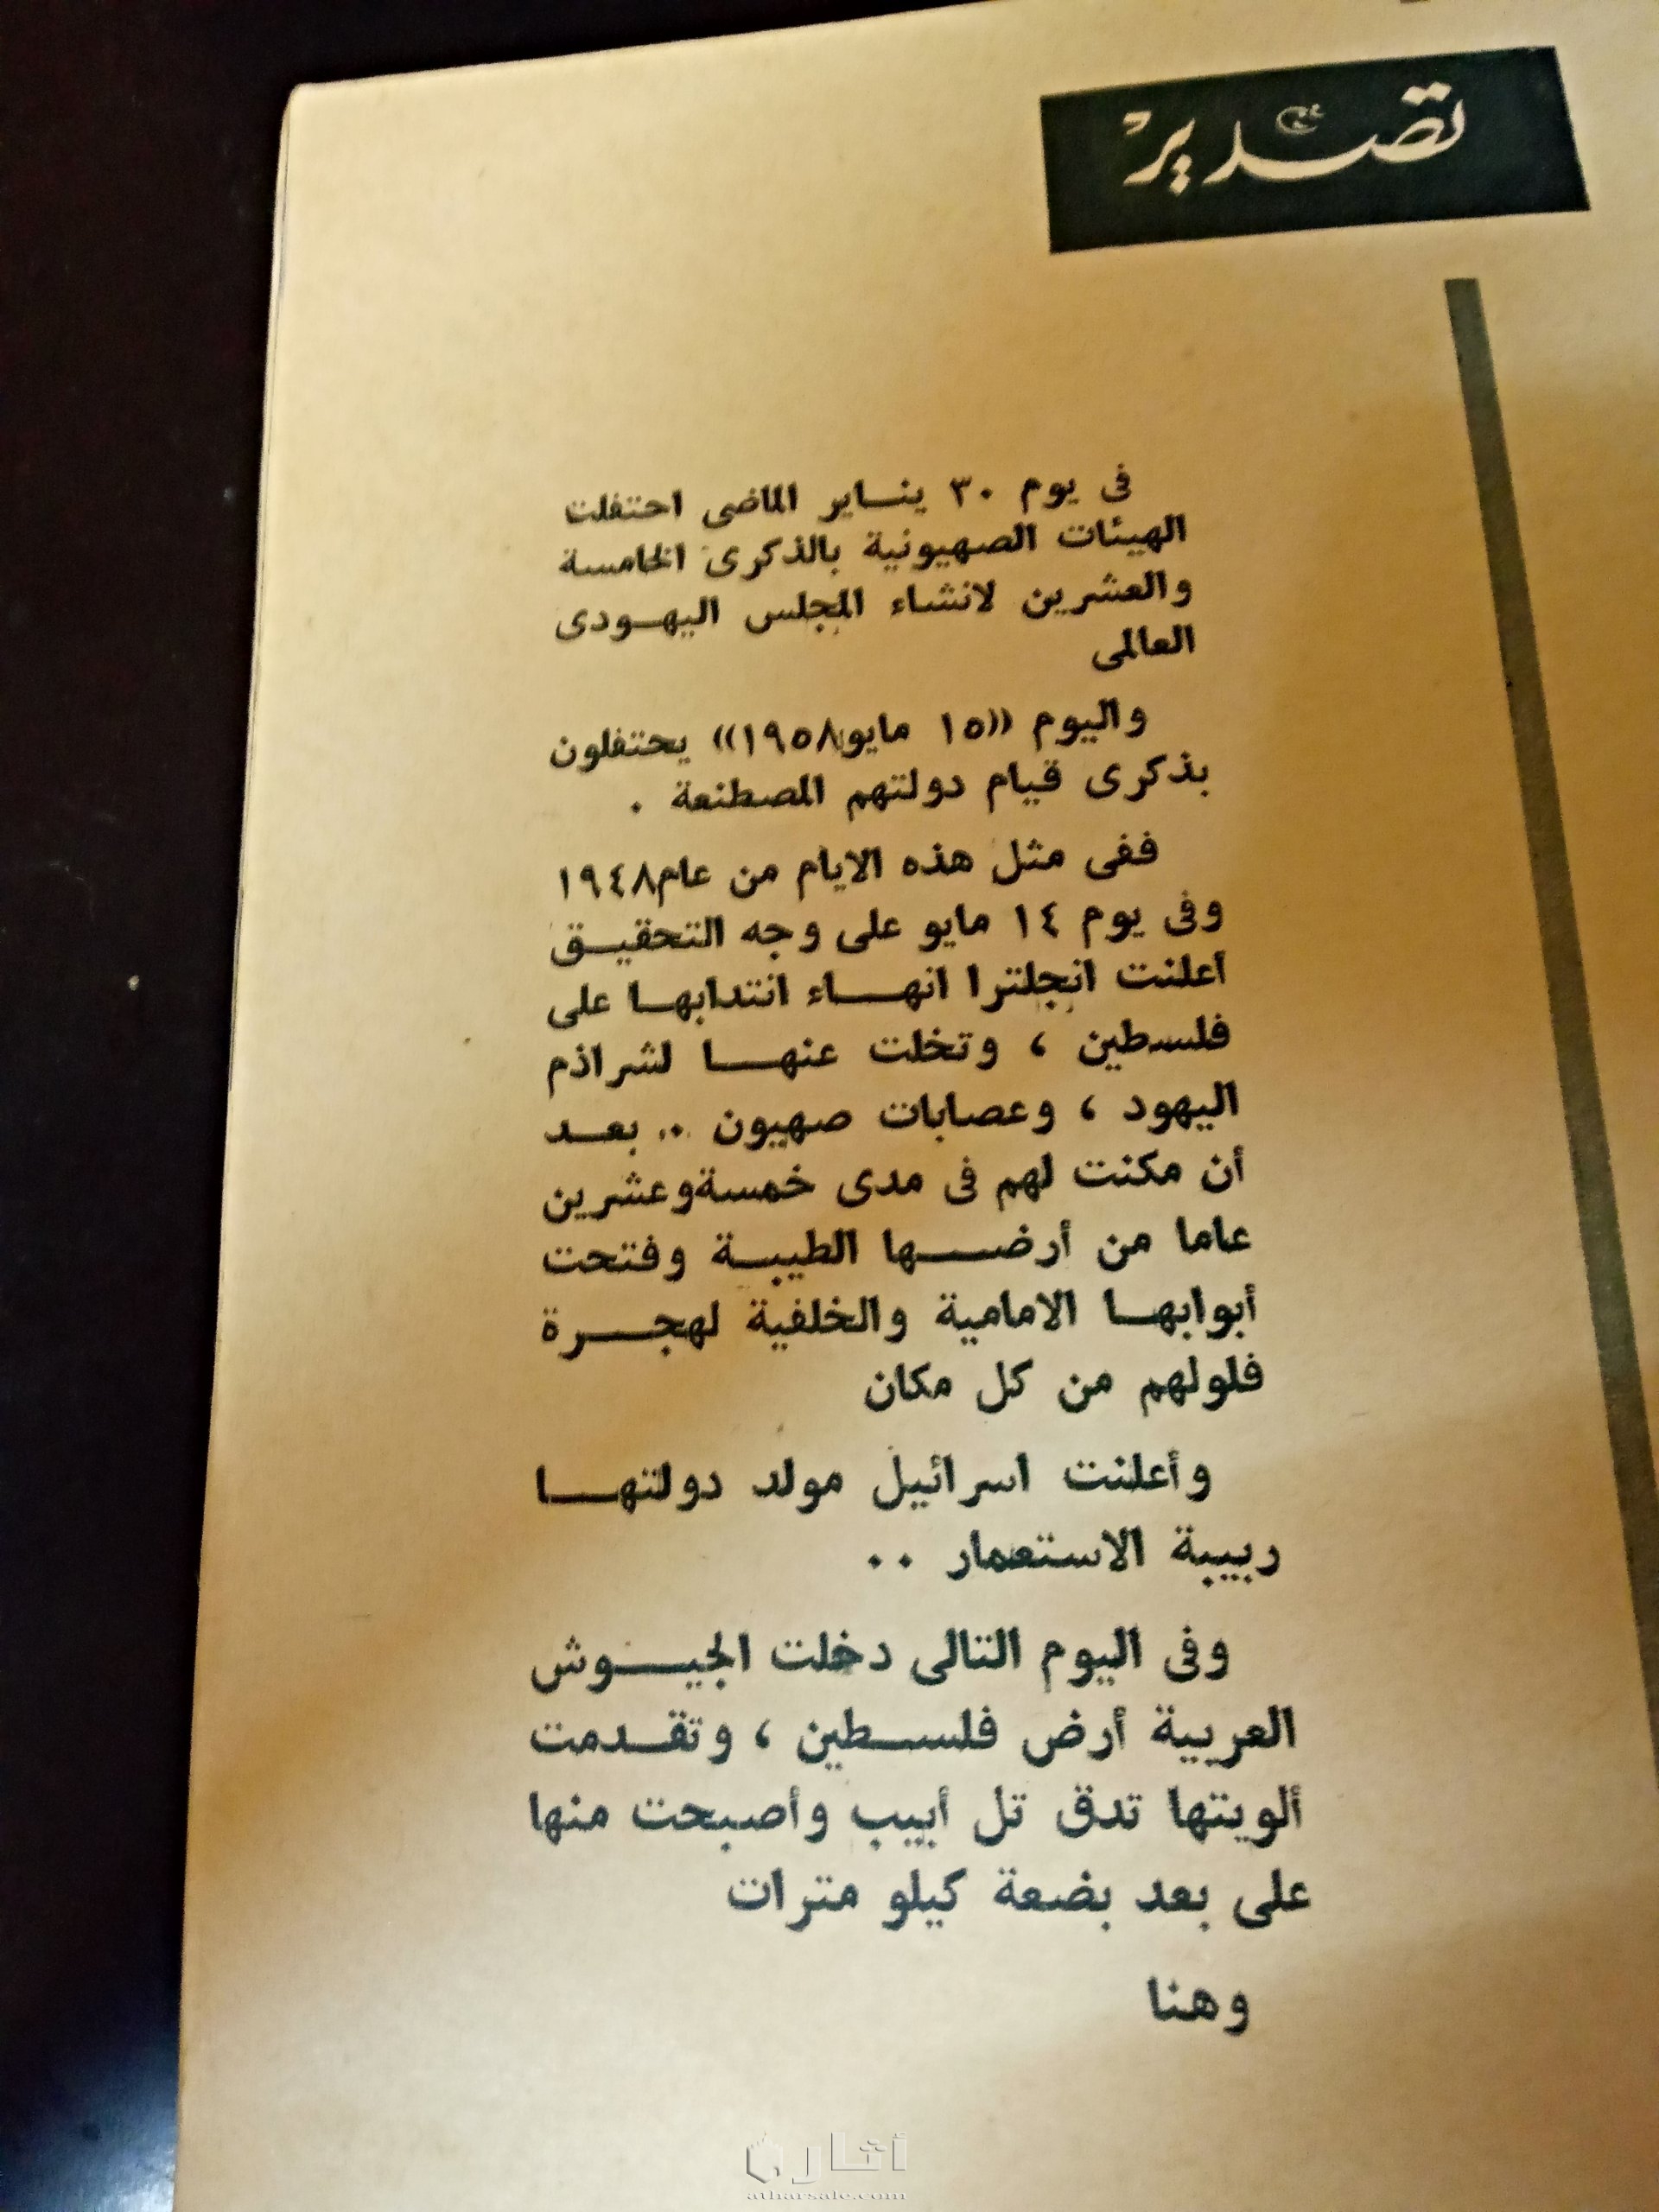 تصدير
فى يوم ٣٠ ينـاير الماضى احتفلت
الهيئات الصهيونية بالذكرى الخامسة
والعشرين لانشاء المجلس اليهـودى
العالمى
واليوم ((١٥ مايو١٩٥٨)) يحتفلون
بذكرى قيام دولتهم المصطنعة .
ففى مثل هذه الايام من عام١٩٤٨
وفى يوم ١٤ مايو على وجه التحقيـق
أعلنت انجلترا انهـاء انتدابهـا على
فلسطين ، وتخلت عنهـا لشراذم
اليهود ، وعصابات صهيون .. بعـد
أن مكنت لهم فى مدى خمسةوعشرين
عاما من أرضـها الطيبـة وفتحت
أبوابهـا الامامية والخلفية لهجـرة
فلولهم من كل مكان
وأعلنت اسرائيل مولد دولتهـا
ربيبة الاستعمار ..
وفى اليوم التالى دخلت الجيـوش
العربية أرض فلسـطين ، وتقـدمت
ألويتها تدق تل أبيب وأصبحت منها
على بعد بضعة كيلو مترات
وهنا
أثار
atharsale.com